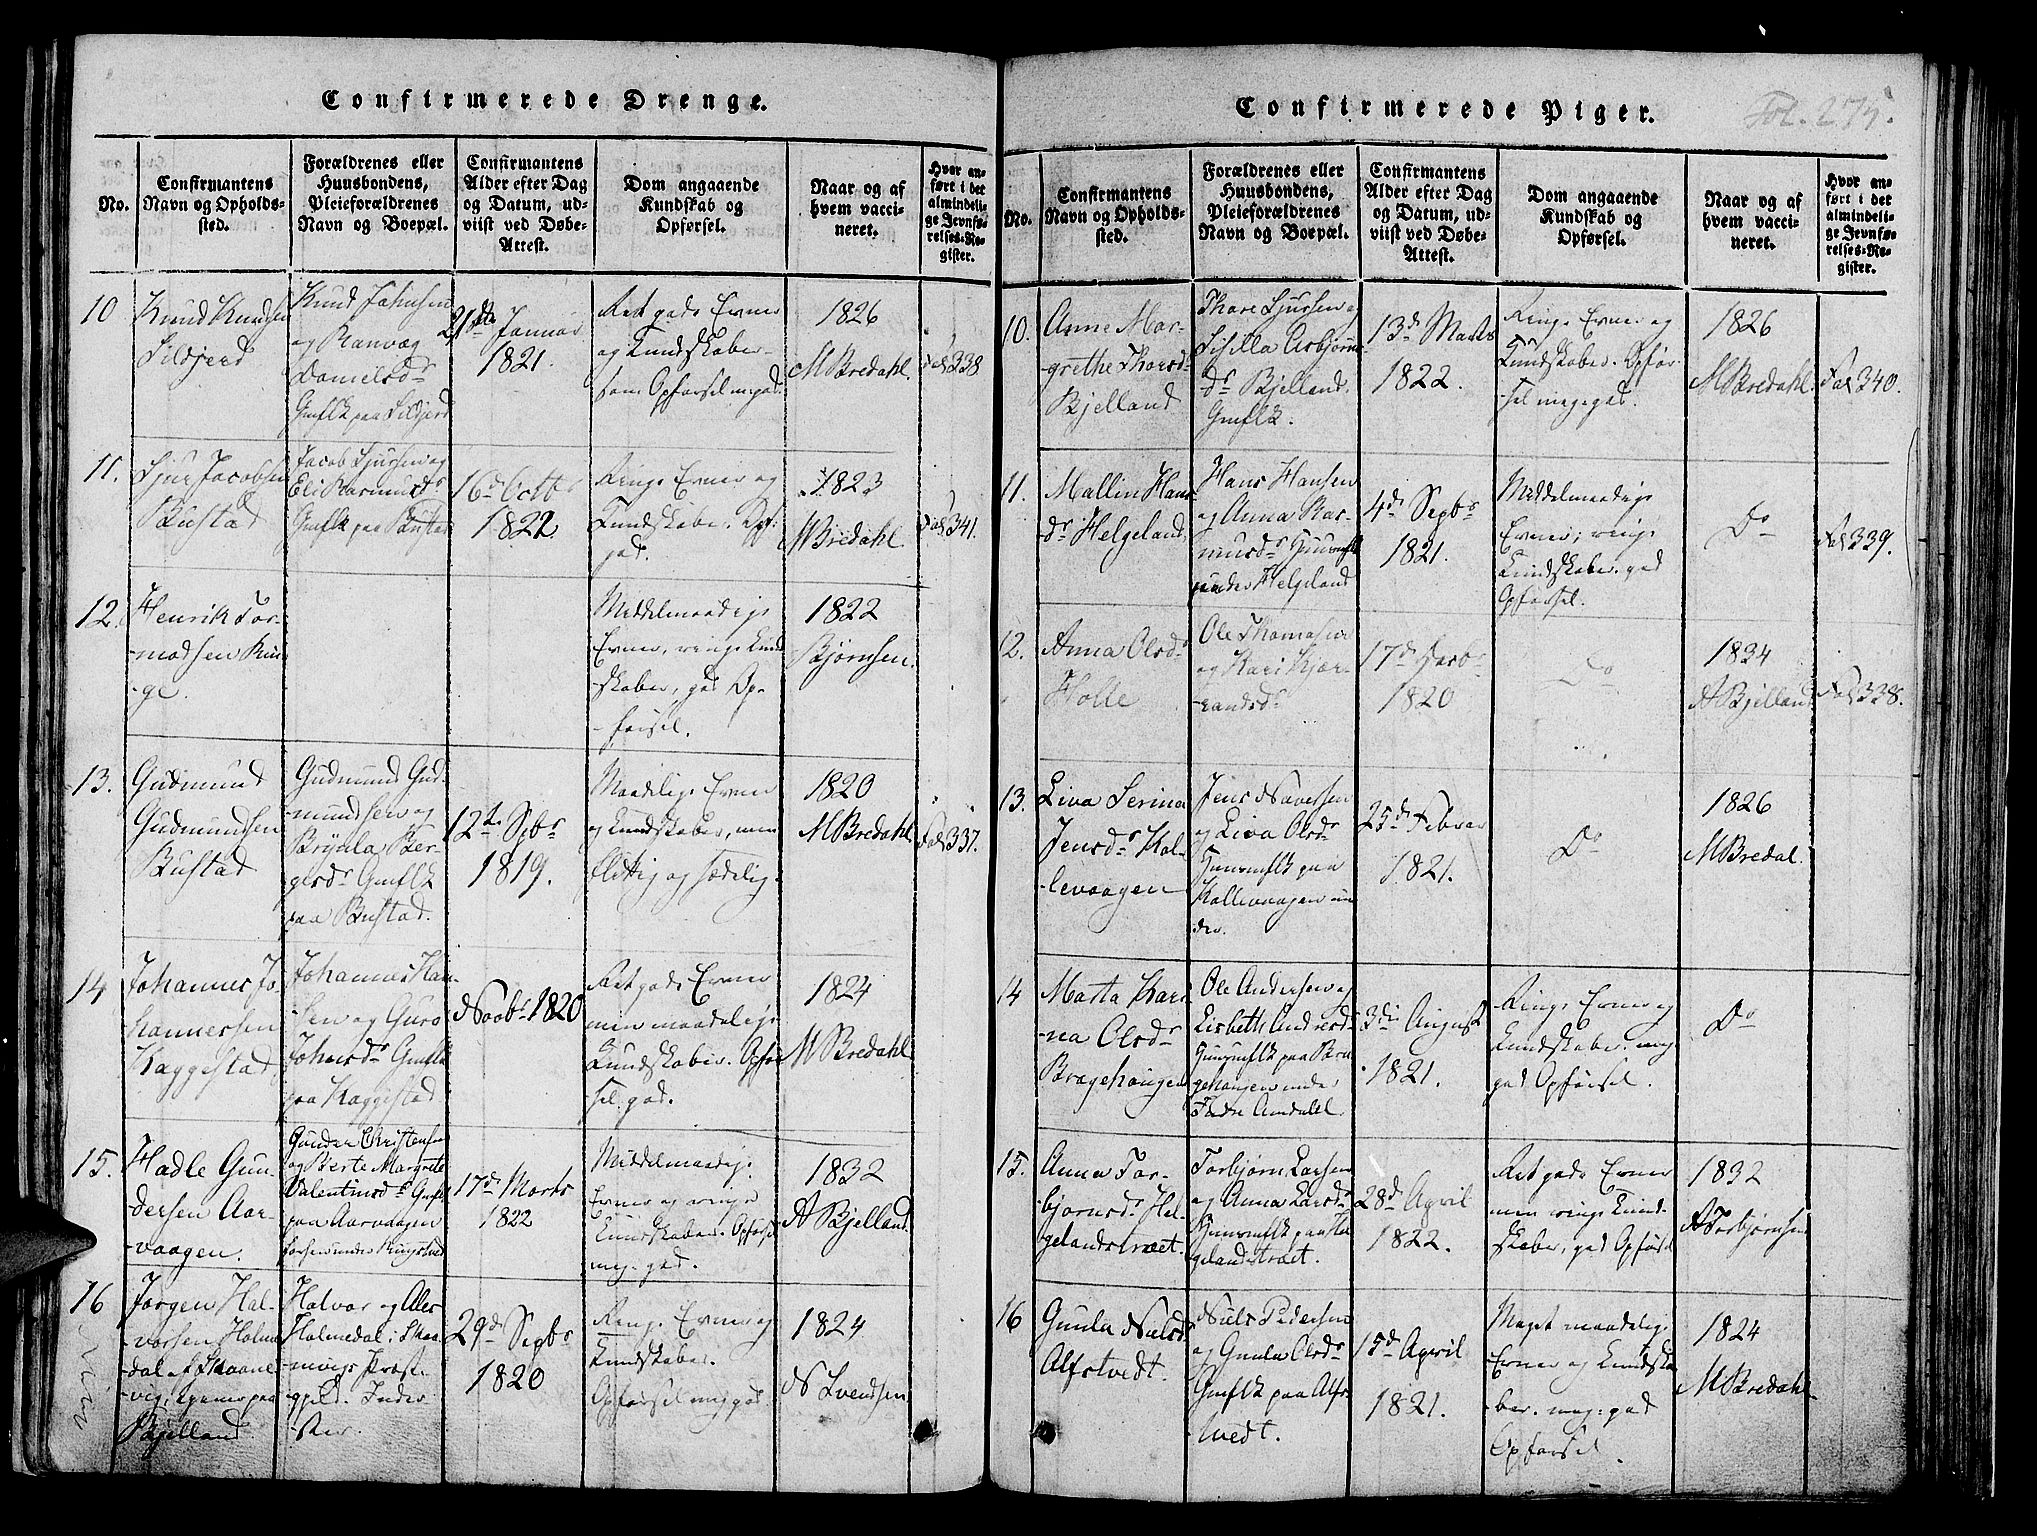 Confirmerede Drenge.
No.
Confirmantens
Navn og Opholds-
sted.
Forældrenes eller
Huusbondens,
Pleieforældrenes
Navn og Boepæl.
Confirmantens
Alder efter Dag
og Datum, ud-
viist ved Døbe-
Attest.
Dom angaaende
Kundskab og
Opførsel.
Naar og af
hvem vacci-
neret.
Hvor an-
ført i det
almindeli-
ge Jevnfø-
relses-Re-
gister.
10
Knud Knudsen
Sildjerd
Knud Johnsen
og Ranvæg
Danielsdr
Gmflk paa Sildjerd
21de Januar
1821.
Ret gode Evner
og Kundskaber
som Opførsel m. god.
1826
M Bredahl.
Fol 338
11.
Sjur Jacobsen
Bustad
Jacob Sjursen og
Eli Rasmusdr
Gmflk paa Bustad
16d Octbr
1822
Ringe Evner og
Kundskaber. Opf:
god.
1823
M Bredahl.
Fol 341.
12.
Henrik Tor-
modsen Rin-
ge.
Middelmaadige
Evner, ringe Kund
skaber, god Op-
førsel.
1822
Bjørnsen.
13.
Gudmund
Gudmundsen
Bustad
Gudmund Gud
mundsen og
Brynla Bør-
gesdr Gmflk
paa Bustad.
12te Spbr
1819.
Maadelige Evner
og Kundskaber, men
flittig og sædelig.
1820
M Bredahl.
Fol 337.
14
Johannes Jo-
hannessen
Kaggestad
Johannes Han-
sen og Guro
Johnsdr Gmflk
paa Kaggestad
Novbr 1820
Ret gode Evner
men maadelige
Kundskaber. Opfør
sel god.
1824
M Bredahl
15.
Hadle Gun-
dersen Aar-
vaagen.
Gunder Christensen
og Berte Margrete
Valentinsdr Gmflk
paa Aarvaagen
17d Marts
1822
Middelmaadige
Evner og ringe
Kundskaber. Opførsel
meg. god.
1832
A Bjelland.
16
Jørgen Hal-
vorsen Holme
dal af Skaane
vig, tjener paa
Bjelland
Halvor og Ales
Holmedal i Skaa
nevigs Præst
gjeld. Inder
ster.
29d Sepbr
1820
Ringe Evner og
Kundskaber.
Opførsel meg god
1824
N Svendsen
Confirmerede Piger.
Fol. 275.
No.
Confirmantens
Navn og Opholds-
sted.
Forældrenes eller
Huusbondens,
Pleieforældrenes
Navn og Boepæl.
Confirmantens
Alder efter Dag
og Datum, ud-
viist ved Døbe-
Attest.
Dom angaaende
Kundskab og
Opførsel.
Naar og af
hvem vacci-
neret.
Hvor an-
ført i det
almindeli-
ge Jevnfø-
relses-Re-
gister.
10.
Anne Mar-
grethe Thorsd
Bjelland
Thore Sjursen og
Sisilla Asbjørns
dr Bjelland.
Gmflk.
13d Marts
1822.
Ringe Evner og
Kundskaber. Opfør
sel meg. god.
1826
M Bredahl.
Fol 340.
11.
Mallin Hans
dr Helgeland
Hans Hansen
og Anna Ras-
musdr Huusmflk
under Helgeland
4de Sepbr
1821.
Middelmaadige
Evner, ringe
Kundskaber. god
Opførsel.
Do
Fol 339.
12.
Anna Olsdr
Holle
Ole Thomasen
og Kari Kjør-
landsdr
17d Febr
1820
Do
1834
A Bjelland
Fol 338.
13.
Liva Serina
Jensdr Kol-
levaagen
Jens Naversen
og Liva Olsdr
Huusmflk paa
Kollevaagen un
der.
25d Febrar
1821.
Do
1826
M Bredal.
14
Marta Kari-
na Olsdr
Bragehaugen
Ole Andersen og
Lisbeth Andresdr
Huusmflk paa Bra
gehaugen under
Indre Amdahl.
3die August
1821.
Ringe Evner og
Kundskaber. meg
god Opførsel.
Do
15.
Anna Tor-
bjørnsdr Hel-
gelandstræet.
Torbjørn Larsen
og Anna Larsdr
Huusmflk paa Hel
gelandstræet.
28d April
1822.
Ret gode Evner
men ringe Kund-
skaber, god Opførsel
1832
A Torbjørnsen
16
Gunla Nielsdr
Alfstvedt.
Niels Pedersen
og Gunla Olsdr
Gmflk paa Alfs
tvedt.
15d April
1821.
Meget maadelige
Evner og Kundska
ber. meg: god
Opførsel
1824
M Bredahl